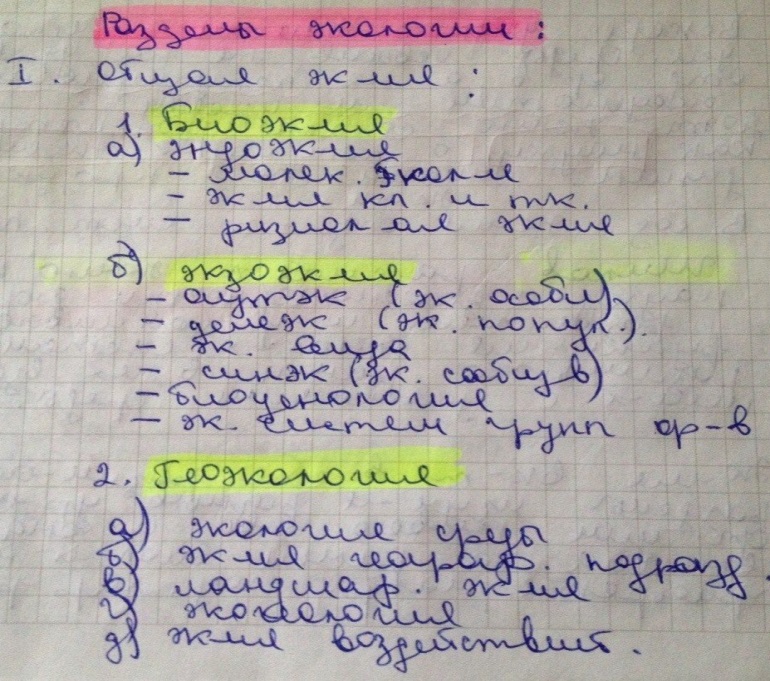 Разделы экологии:
I. Общая эк-гия:
1. Биоэк-гия
а) эндоэк-гия
- молек. экол-я
- эк-гия кл. и тк.
- физиол-ая эк-гия
б) экзоэк-гия
- аутэк (эк. особи)
- демэк (эк. попул.).
- эк. вида
- синэк (эк. сообщ-в)
- биоценология
- эк. систем групп ор-в
2. Геоэкология
а) экология среды
б) эк-гия географ. подразд.
в) ландшаф. эк-гия
г)
д) эк-гия воздействия.